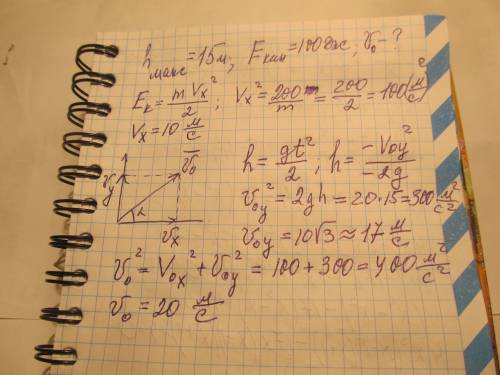 h макс = 15м; Eкин = 100Дж; v₀ - ?
Eк = mVx²/2; Vx² = 200/m = 200/2 = 100 (м/с)²
Vx = 10 м/с
v̄₀
vy
α
vx
h = gt²/2; h = -V₀y²/-2g
v₀y² = 2gh = 20·15 = 300 м²/с²
v₀y = 10√3 ≈ 17 м/с
v₀² = V₀x² + V₀y² = 100 + 300 = 400 м²/с²
v₀ = 20 м/с